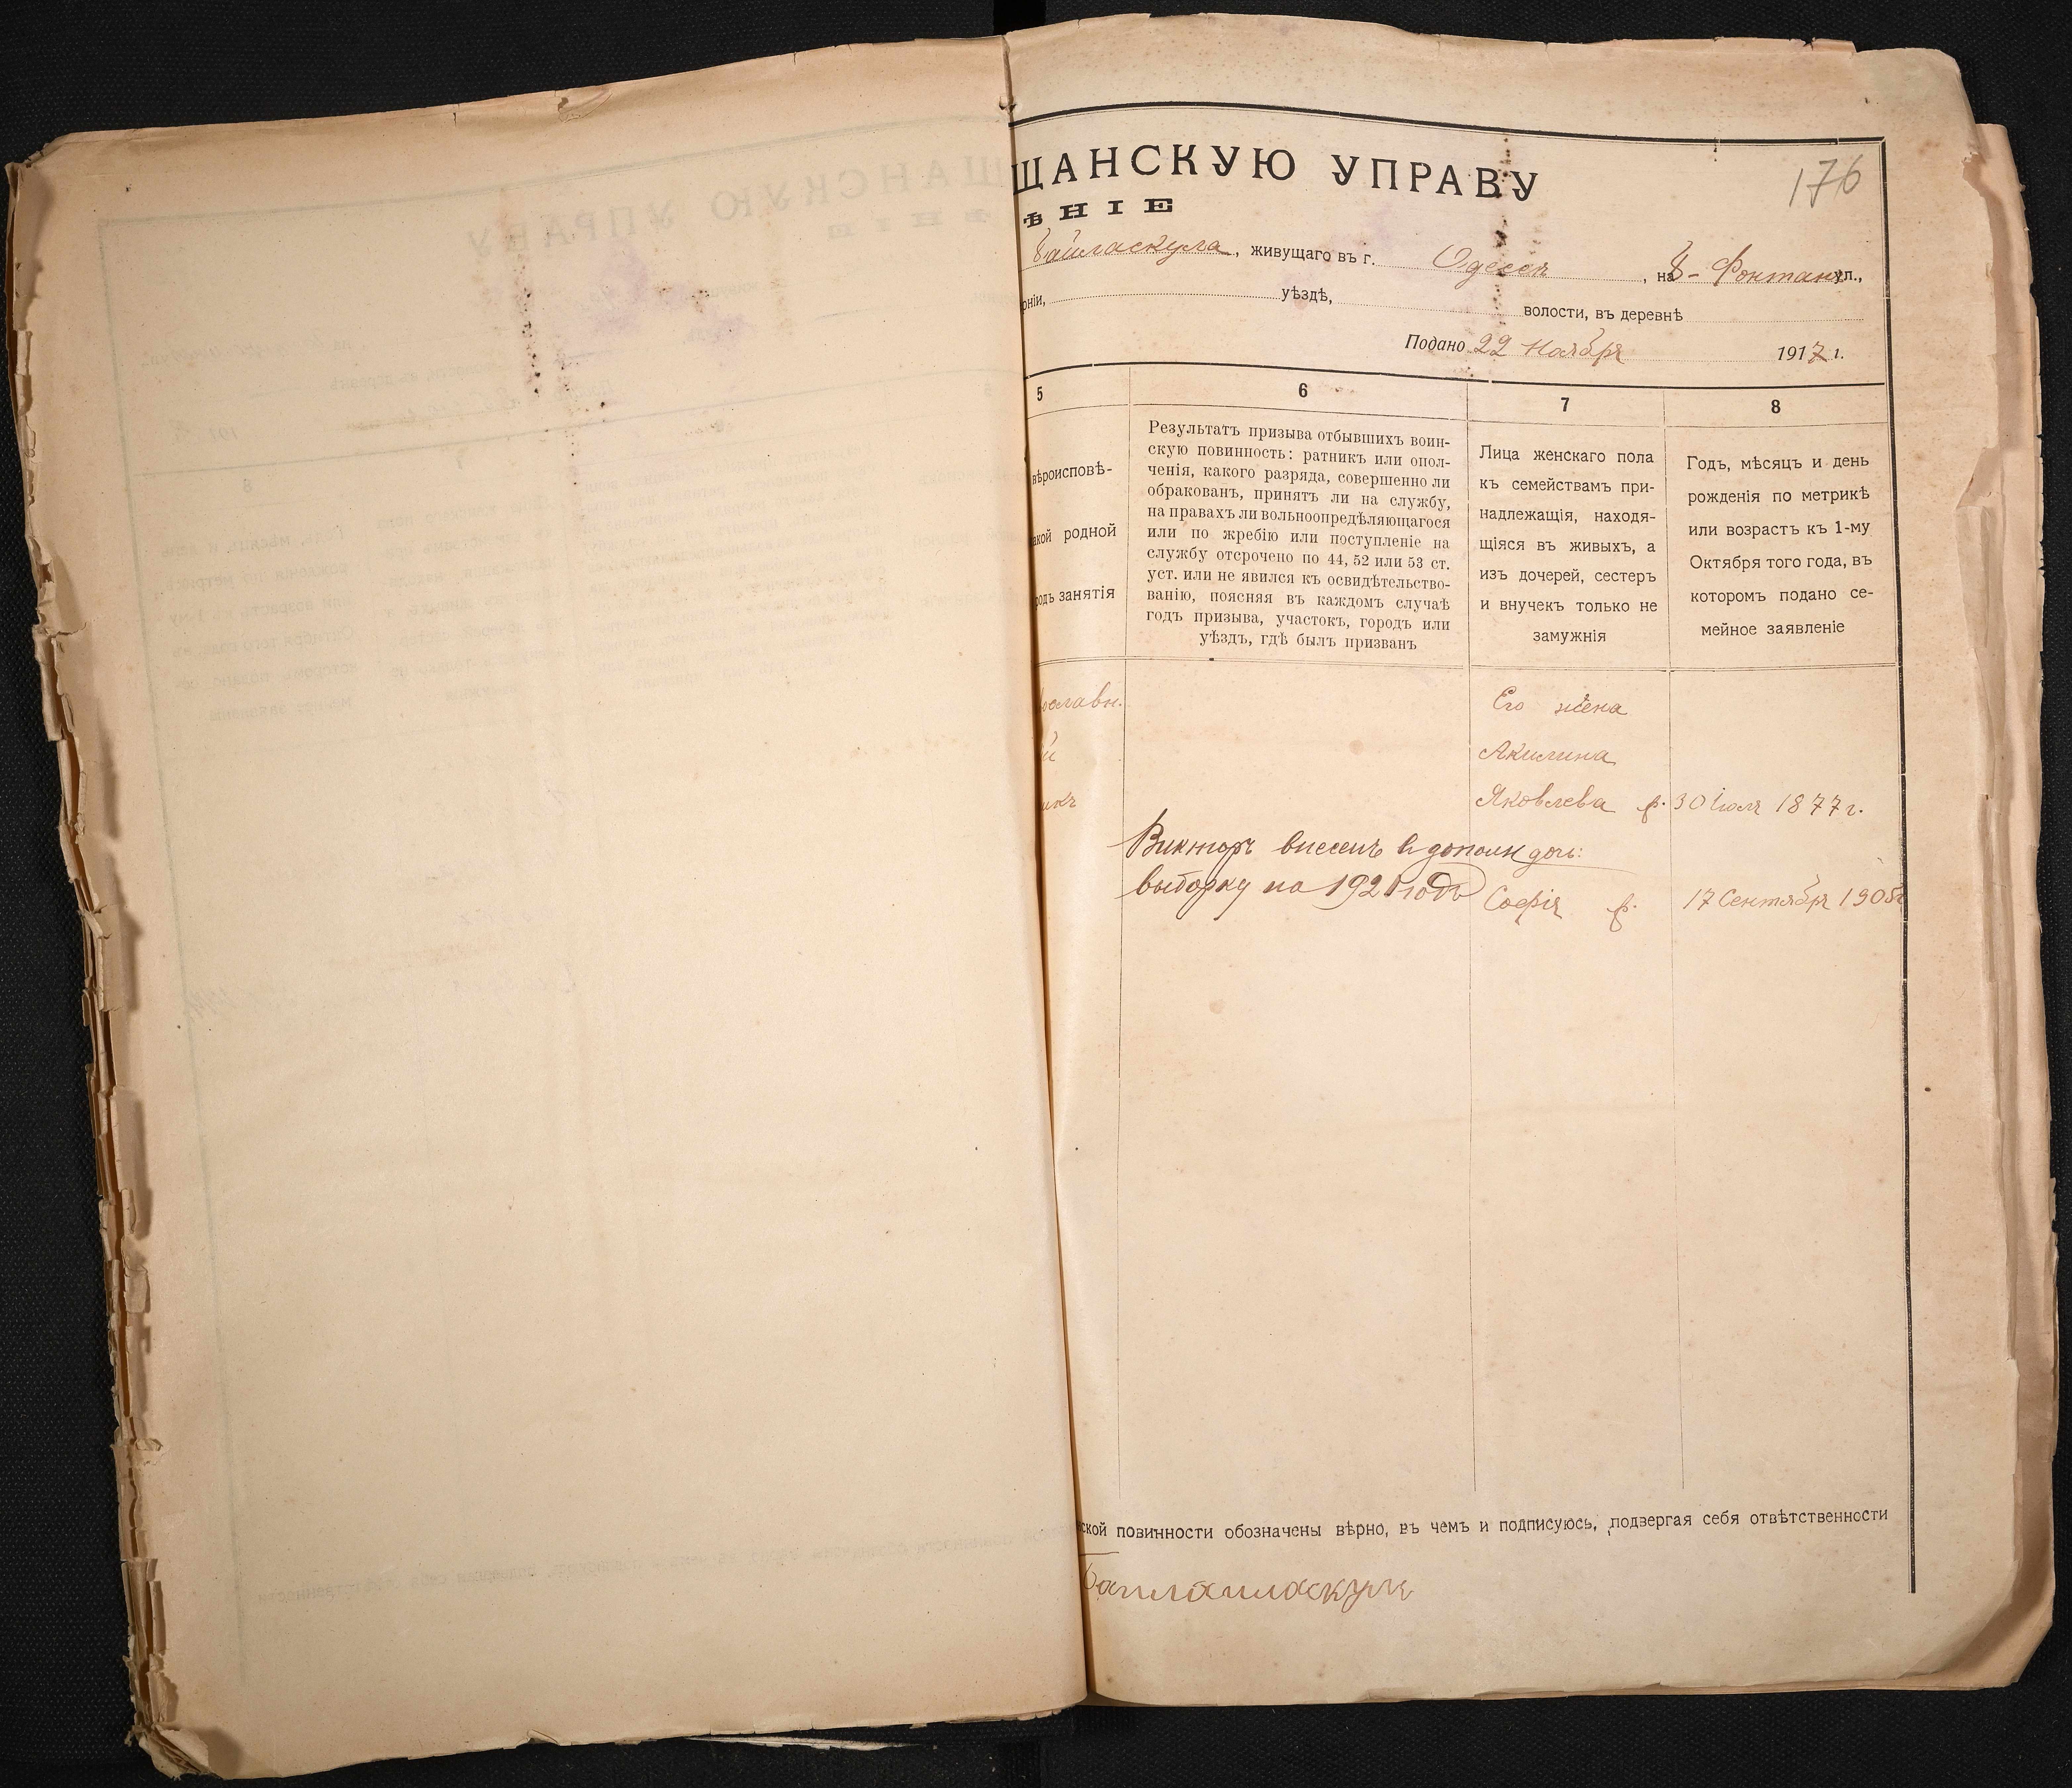 176
ЩАНСКУЮ УПРАВУ
ѢНІЕ
, живущаго въ г. Одессѣ, на Б-Фонтанѣ ул.,
рніи, уѣздѣ, волости, въ деревнѣ
Подано 22 Ноября 1917 г.
5 6 7 8
вѣроисповѣ-
акой родной
родъ занятія
Результатъ призыва отбывшихъ воин-
скую повинность: ратникъ или опол-
ченія, какого разряда, совершенно ли
обракованъ, принятъ ли на службу,
на правахъ ли вольноопредѣляющагося
или по жребію или поступленіе на
службу отсрочено по 44, 52 или 53 ст.
уст. или не явился къ освидѣтельство-
ванію, поясняя въ каждомъ случаѣ
годъ призыва, участокъ, городъ или
уѣздъ, гдѣ былъ призванъ
Лица женскаго пола
къ семействамъ при-
надлежащія, находя-
щіяся въ живыхъ, а
изъ дочерей, сестеръ
и внучекъ только не
замужнія
Годъ, мѣсяцъ и день
рожденія по метрикѣ
или возрастъ къ 1-му
Октября того года, въ
которомъ подано се-
мейное заявленіе
ославн.
й
икъ
Его жена
Акилина
Яковлева р. 30 Іюля 1877 г.
Викторъ внесенъ в дополн
выборку на 1921 годъ
дочь:
Софія р. 17 Сентября 1905г
ской повинности обозначены вѣрно, въ чемъ и подписуюсь, подвергая себя отвѣтственности